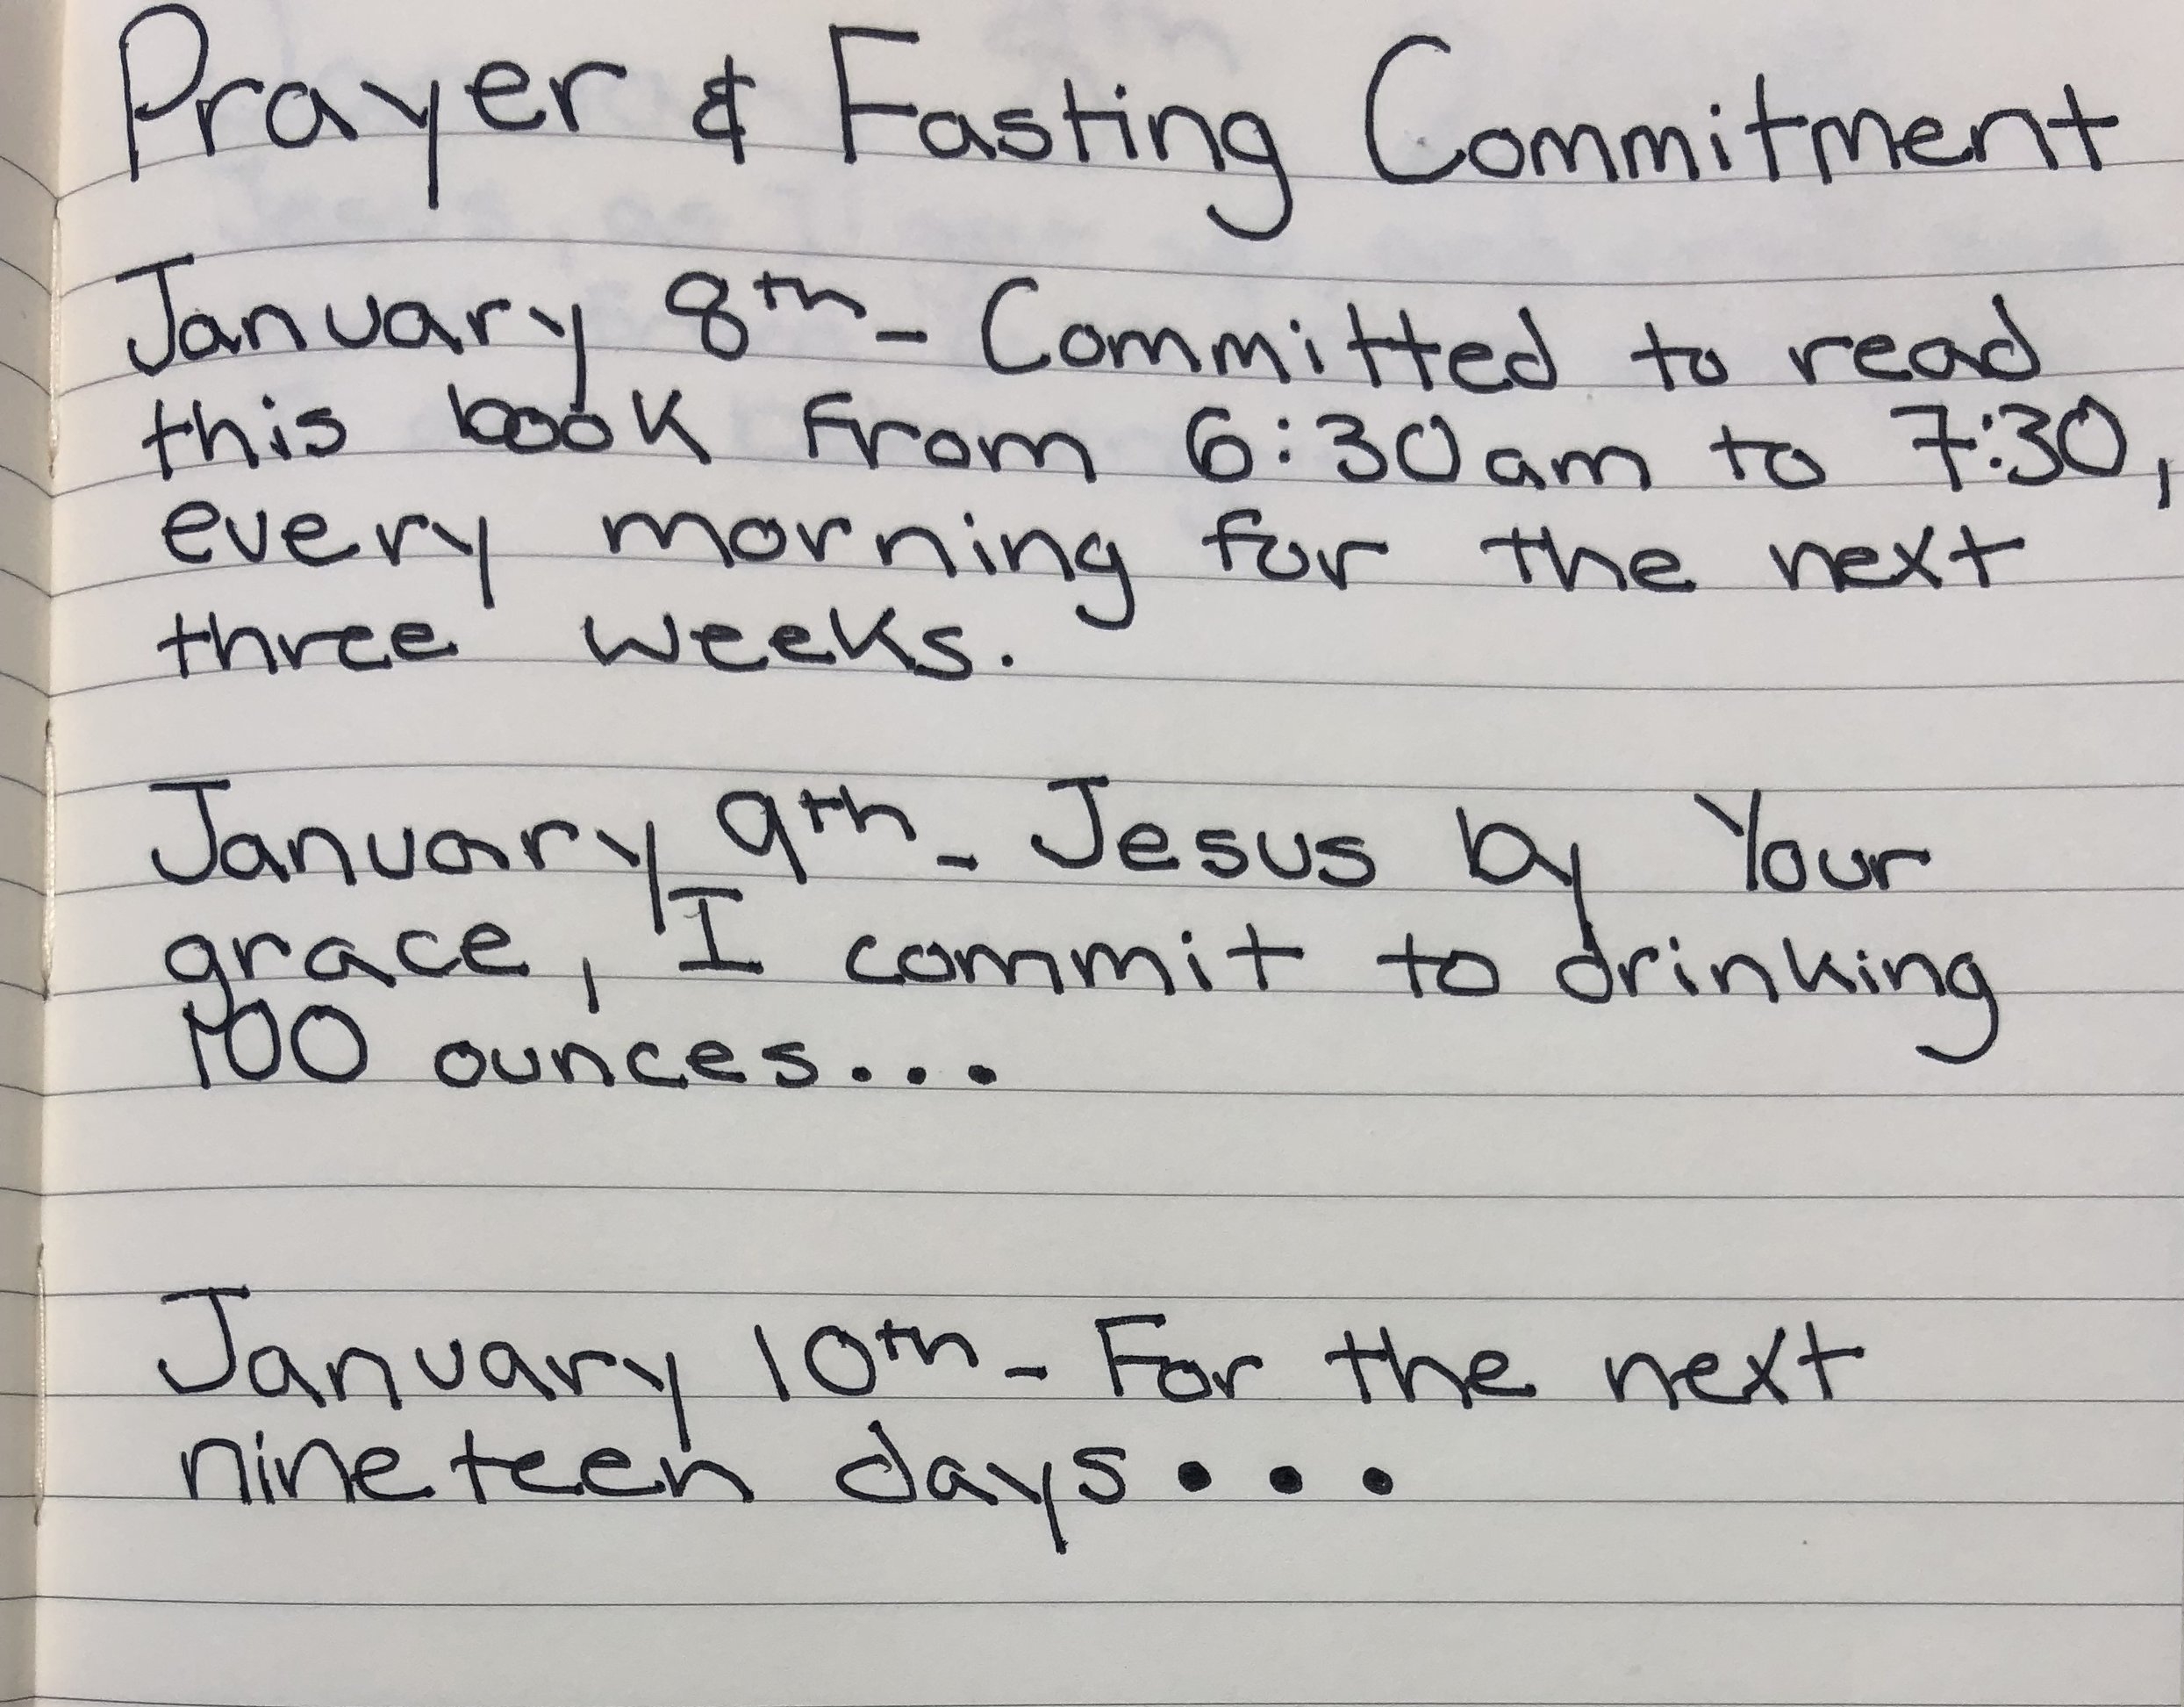 Prayer & Fasting Commitment
January 8th - Committed to read
this book from 6:30am to 7:30,
every morning for the next
three weeks.
January 9th - Jesus by Your
grace, I commit to drinking
100 ounces...
January 10th - For the next
nineteen days...